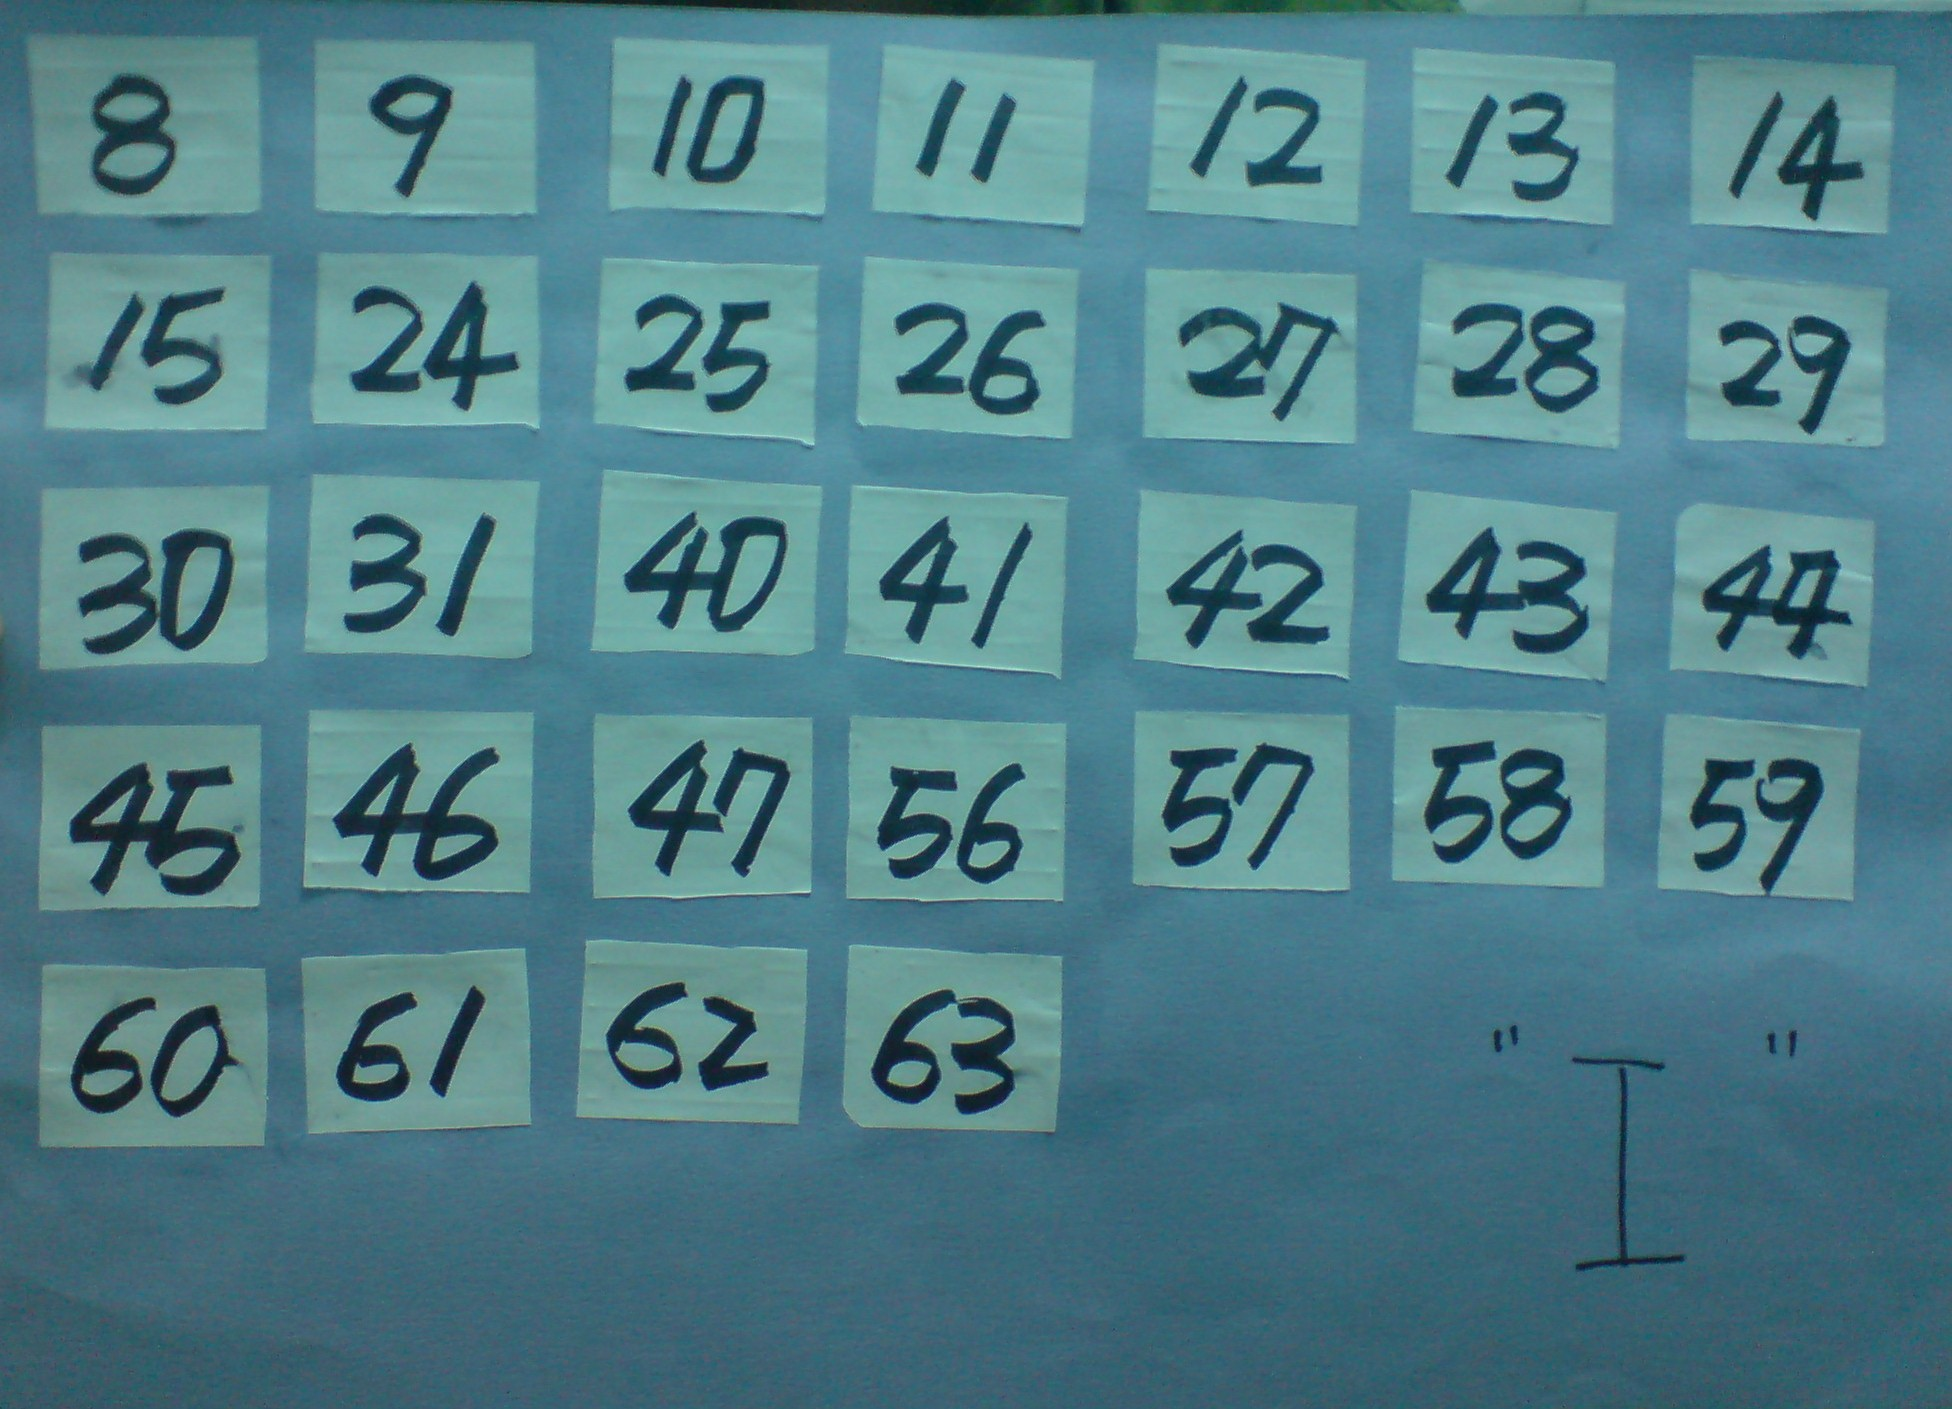 8 9 10 11 12 13 14
15 24 25 26 27 28 29
30 31 40 41 42 43 44
45 46 47 56 57 58 59
60 61 62 63
" I "